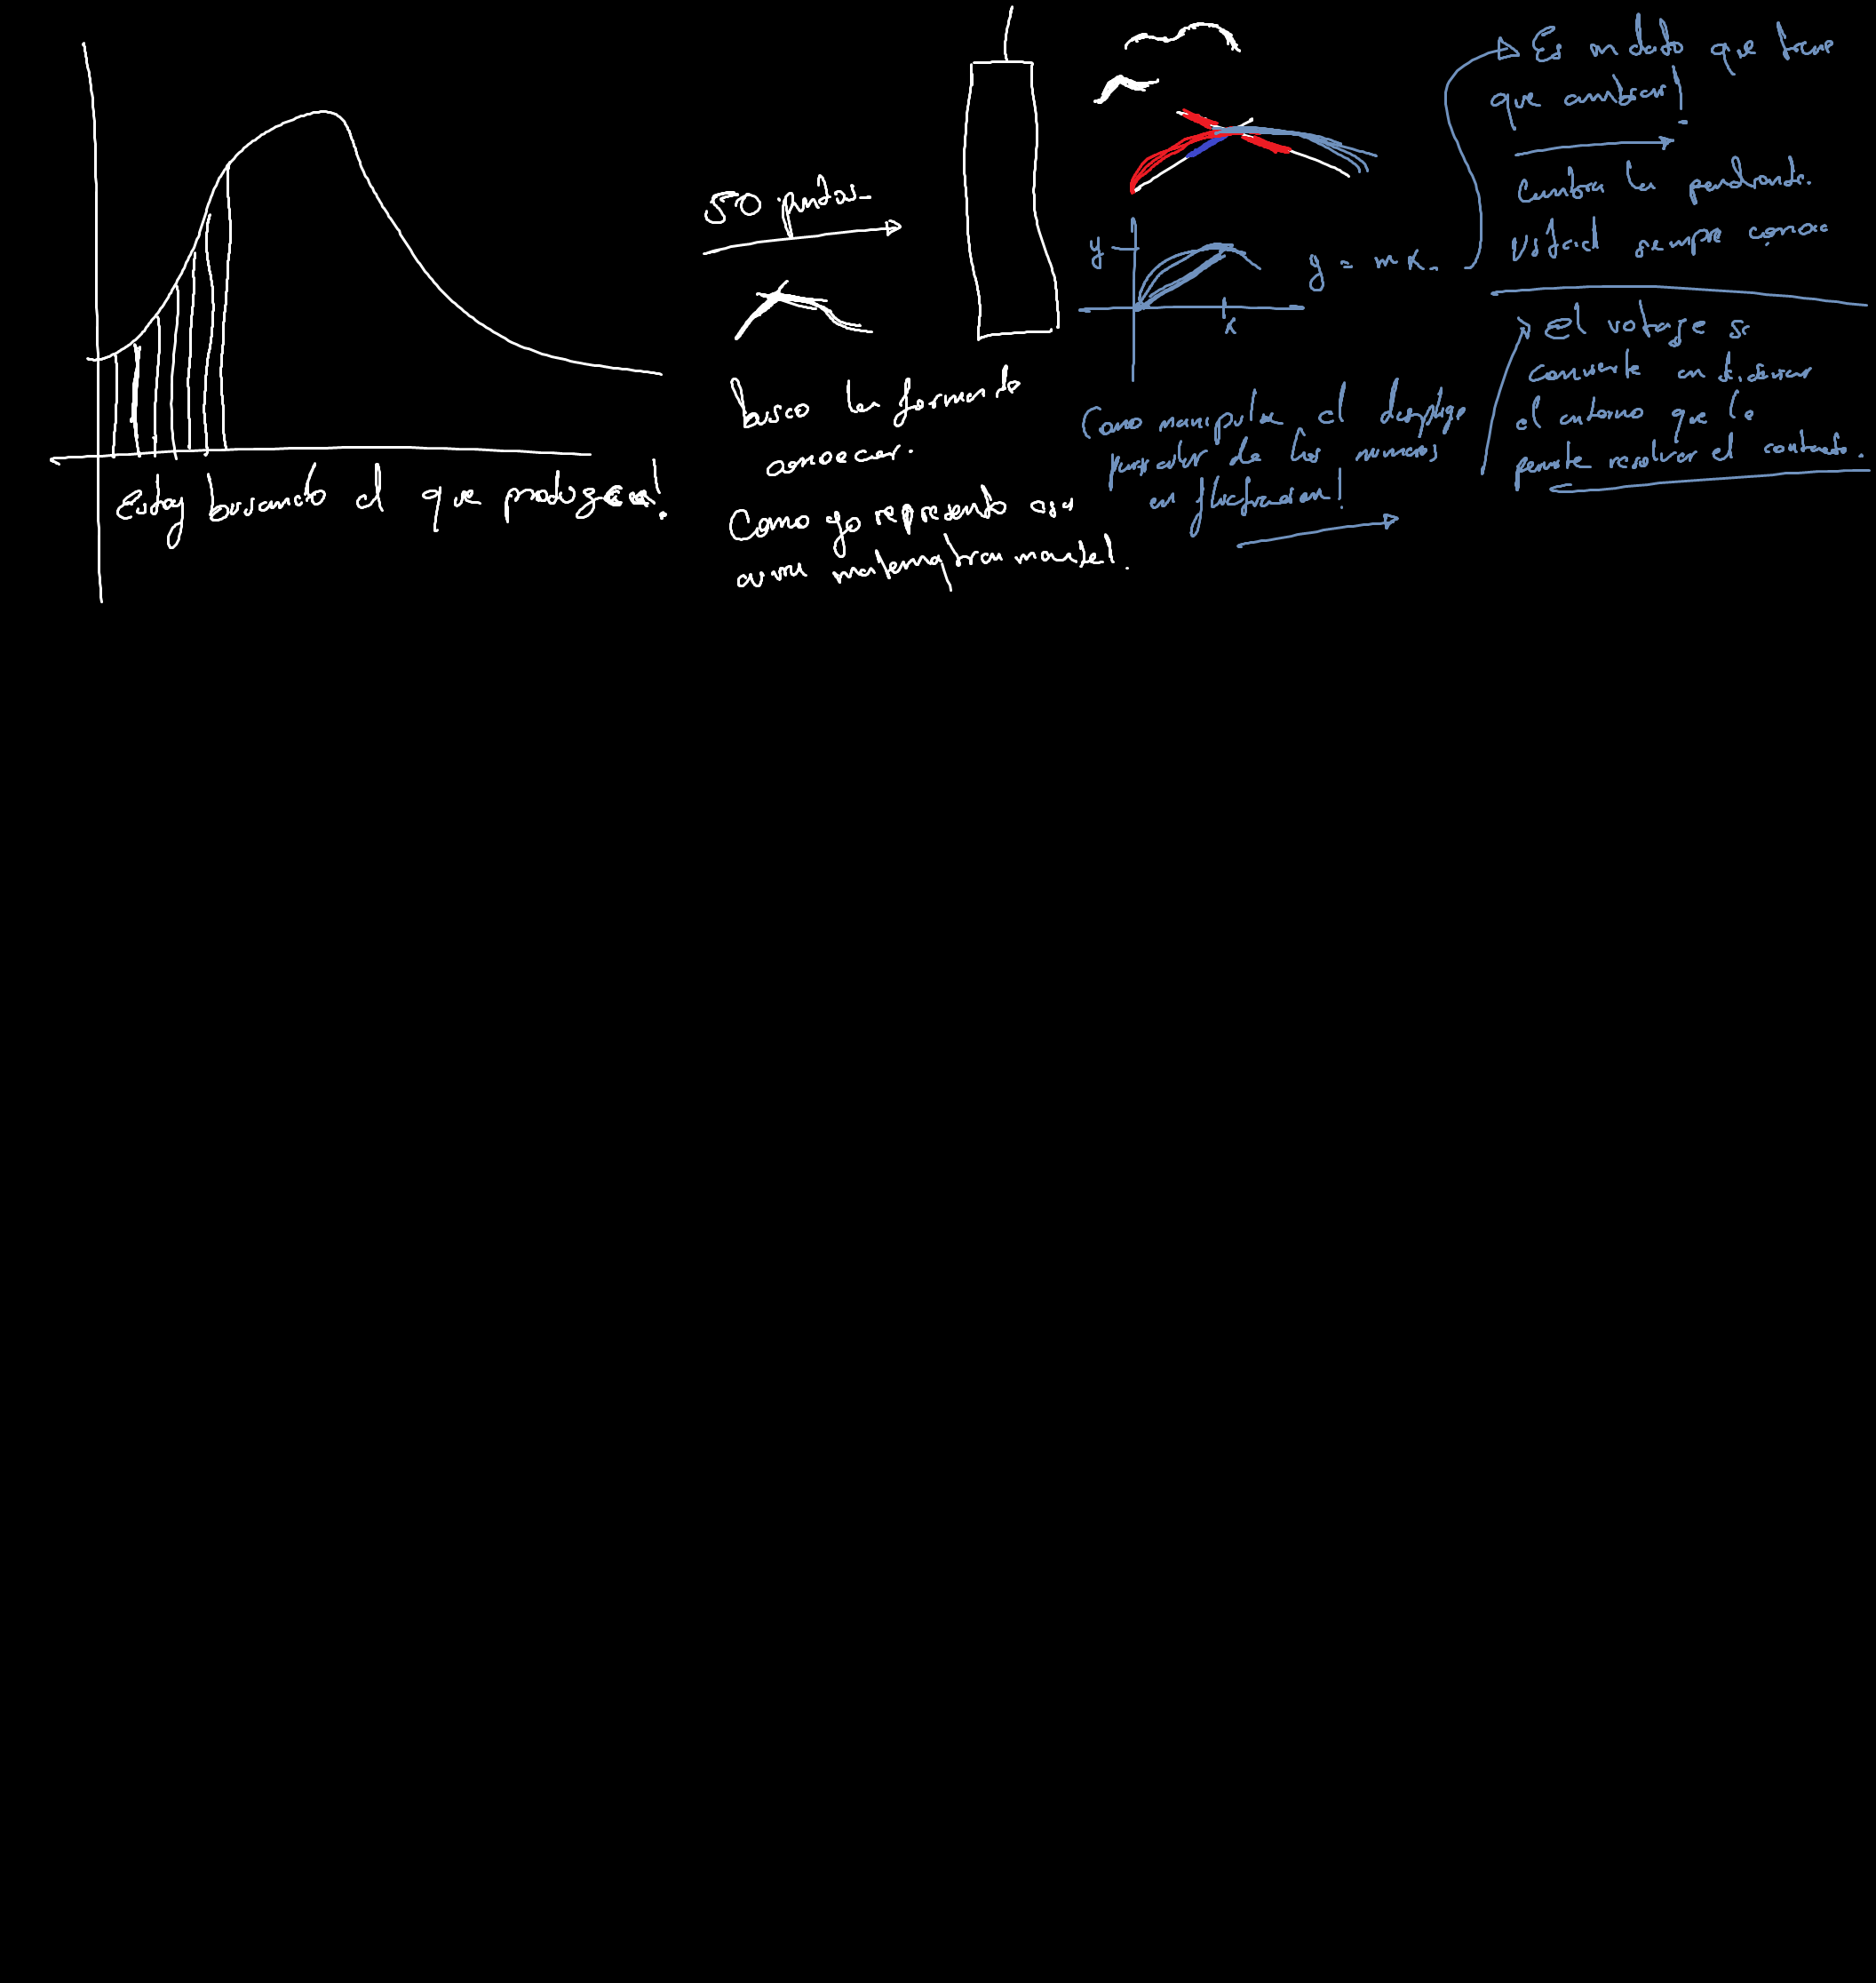 Estoy buscando el que produzca!
50 puntos
busco la forma de
conocer.
Como yo represento esa
curva matematicamente!.
y
x
y = mx.
Como manipular el despliegue
particular de los numeros
en fluctuacion!
Es un dato que tiene
que cambiar!
Cambia la pendiente.
Usted siempre conoce
El votage se
convierte en
el entorno que le
permite resolver el contexto.